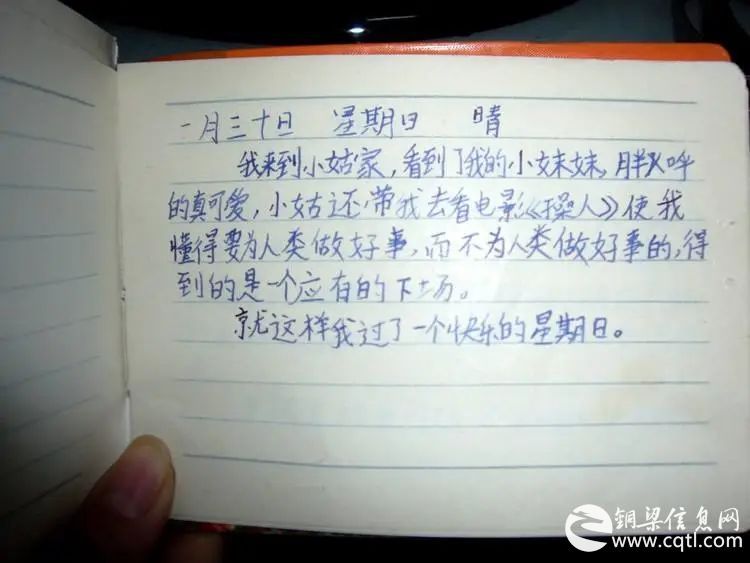 一月三十日 星期日 晴
我来到小姑家,看到了我的小妹妹,胖乎
的真可爱,小姑还带我去看电影《操人》使我
懂得要为人类做好事,而不为人类做好事的,得
到的是一个应有的下场。
就这样我过了一个快乐的星期日。
铜梁信息网
www.cqtl.com